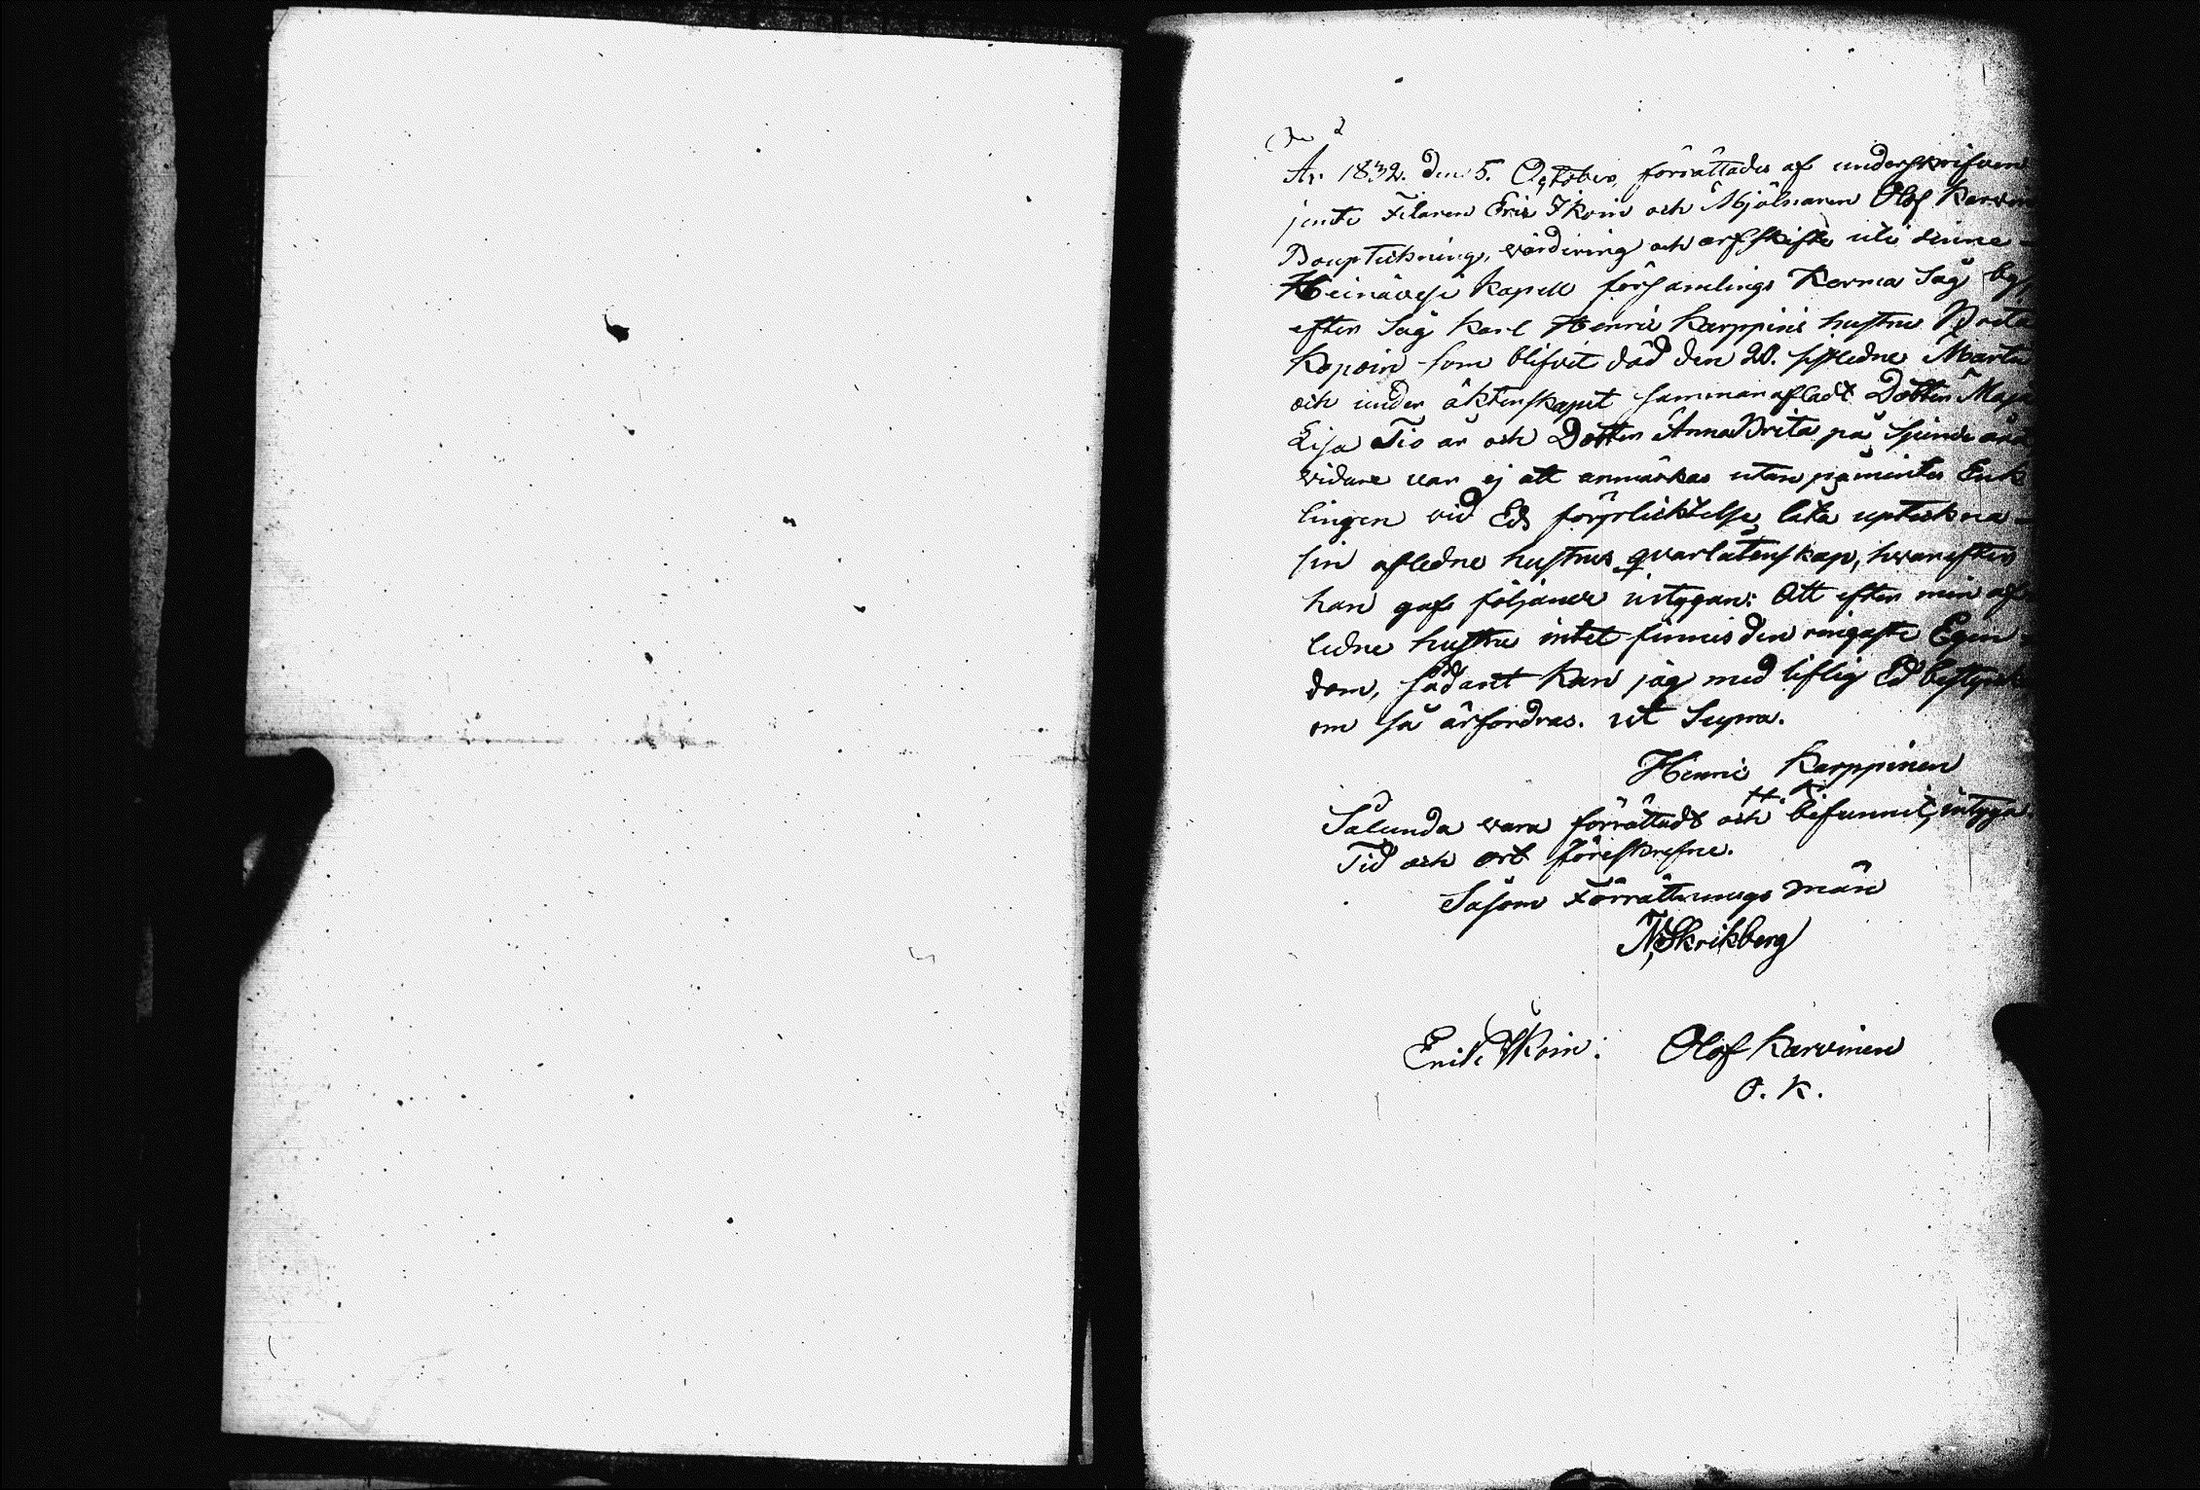 År 1832. den 5. October, förrättades af underskrifven
jemte Filaren Eric Ikoin och Mjölnaren Olof Karvin
Bouptekning, värdering och arfskifte uti denne
Heinävesi Kapell församlings Kerma Såg by,
efter Såg Karl Henric Karppinis hustru Brita
Kopoin som blifvit död den 20. sistledne Martii
och under äktenskapet sammanafladt Dottern Maja
Lisa Tio år och Dottern Anna Brita på Sjunde året
vidare var ej att anmärkas utan påmintes Enk
lingen vid Eds förplichtelse låta upteckna
sin afledne hustrus qvarlåtenskap, hvarefter
han gaf följande intygan: Att efter min af
ledne hustru intet finnes den ringaste Egen
dom, sådant kan jag med liflig Ed bestyrka
om så ärfordras. ut Supra.
Henric Karppinen
H. K
Sålunda vara förrättadt och befunnit, intyga.
Tid och ort föreskrefne.
Såsom Förrättnings män
N Skrikberg
Erik Ikoin. Olof Karvinen
O. K.